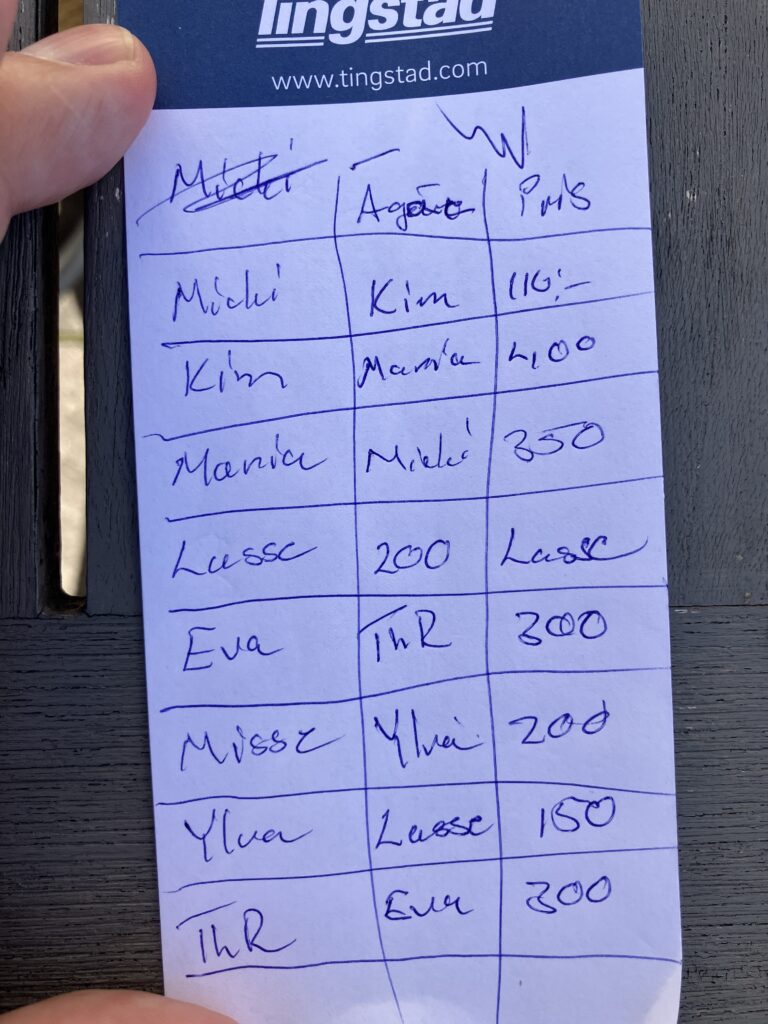 Tingstad
www.tingstad.com
Micki Ägare Pris
Micki Kim 110:-
Kim Maria 400
Maria Micki 350
Lasse 200 Lasse
Eva ThR 300
Misse Ylva 200
Ylva Lasse 150
ThR Eva 300